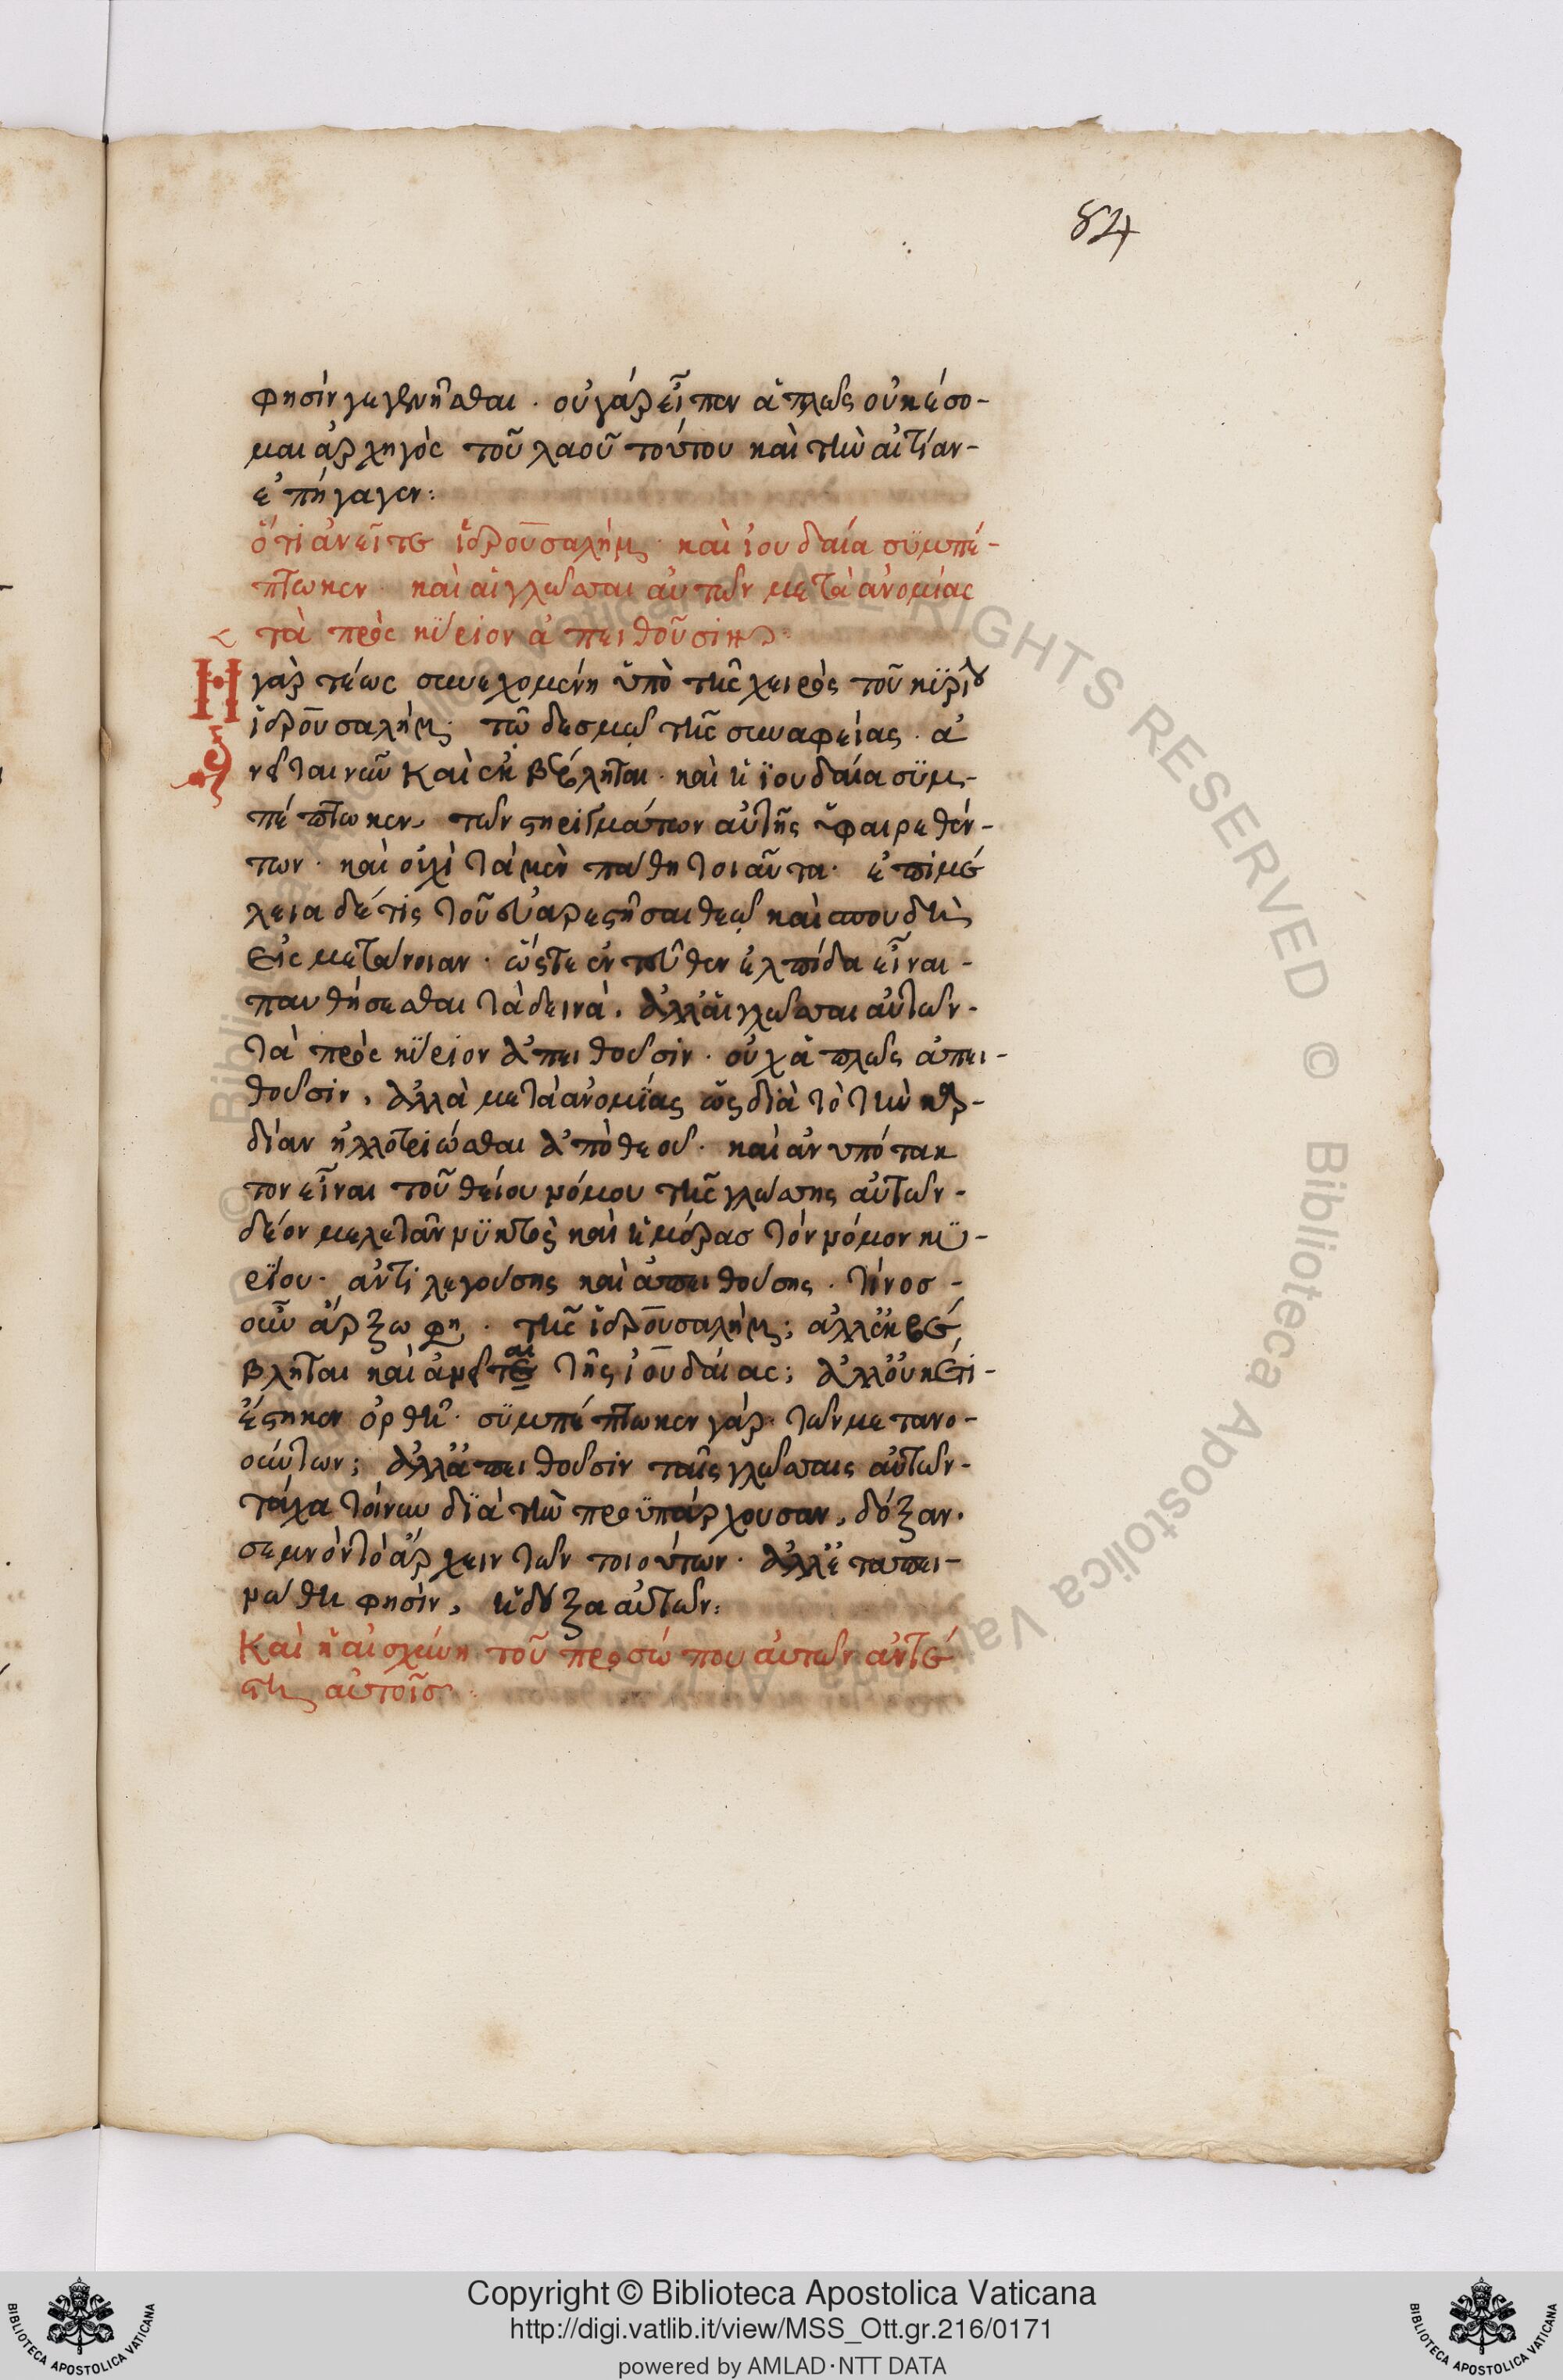 84
φησὶν γεγενῆσθαι · οὐ γὰρ εἶπεν ἁπλῶς οὐκ έσο-
μαι ἀρχηγὸς τοῦ λαοῦ τούτου καὶ τὴν αἰτίαν-
ἐπήγαγεν:
ὅτι ἀνεῖται ϊερουσαλήμ · καὶ ϊουδαία συμπέ-
πτωκεν · καὶ αἱ γλῶσσαι αὐτῶν μετὰ ἀνομίας
τὰ πρὸς κύριον ἀπειθοῦσιν
Ἡ γὰρ τέως συνεχομένη ὑπὸ τῆς χειρὸς τοῦ κυρίου
ϊερουσαλήμ · τῶ δεσμῶ τῆς συναφείας · ἀ
νεῖται νῦν καὶ ἐκβέβληται · καὶ ἡ ϊουδαία συμ-
πέπτωκεν, τῶν στηριγμάτων αὐτῆς ὑφαιρεθέν-
των · καὶ οὐχὶ τὰ μὲν πάθη τοιαῦτα · ἐπιμέ
λεια δέ τις τοῦ εὐαρεστῆσαι θεῶ καὶ σπουδὴ
εἰς μετάνοιαν · ὥστε ἐντεῦθεν ἐλπίδα εἶναι-
παυθήσεσθαι τὰ δεινά, ἀλλ' αἱ γλῶσσαι αὐτῶν-
τὰ πρὸς κύριον ἀπειθοῦσιν · οὐχ ἁπλῶς ἀπει-
θοῦσιν, ἀλλὰ μετὰ ἀνομίας ὡς διὰ τὸ τὴν καρ-
δίαν ἠλλοτριῶσθαι ἀπὸ θεοῦ · καὶ ἀνυπότακ
τον εἶναι τοῦ θείου νόμου τῆς γλώσσης αὐτῶν-
δέον μελετᾶν νυκτὸς καὶ ἡμέρας τὸν νόμον κυ-
ρίου · ἀντιλεγούσης καὶ ἀπειθούσης · τίνος-
οὖν ἄρξω φη · τῆς ϊερουσαλήμ; ἀλλ' ἐκβέ
βληται καὶ ἀνεῖται τῆς ϊουδαίας; ἀλλ' οὐκέτι-
ἕστηκεν ὀρθή · συμπέπτωκεν γάρ · τῶν μετανο-
ούντων; ἀλλ' ἀπειθοῦσιν ταῖς γλώσσαις αὐτῶν-
τάχα τοίνυν διὰ τὴν προϋπάρχουσαν, δόξαν ·
σεμνὸν τὸ ἄρχειν τῶν τοιούτων · ἀλλ' ἐταπει-
νώθη φησίν, ἡ δόξα αὐτῶν:
Καὶ ἡ αἰσχύνη τοῦ προσώπου αὐτῶν ἀντέ
στη αὐτοῖς
Copyright © Biblioteca Apostolica Vaticana
http://digi.vatlib.it/view/MSS_Ott.gr.216/0171
powered by AMLAD·NTT DATA
BIBLIOTECA APOSTOLICA VATICANA
BIBLIOTECA APOSTOLICA VATICANA